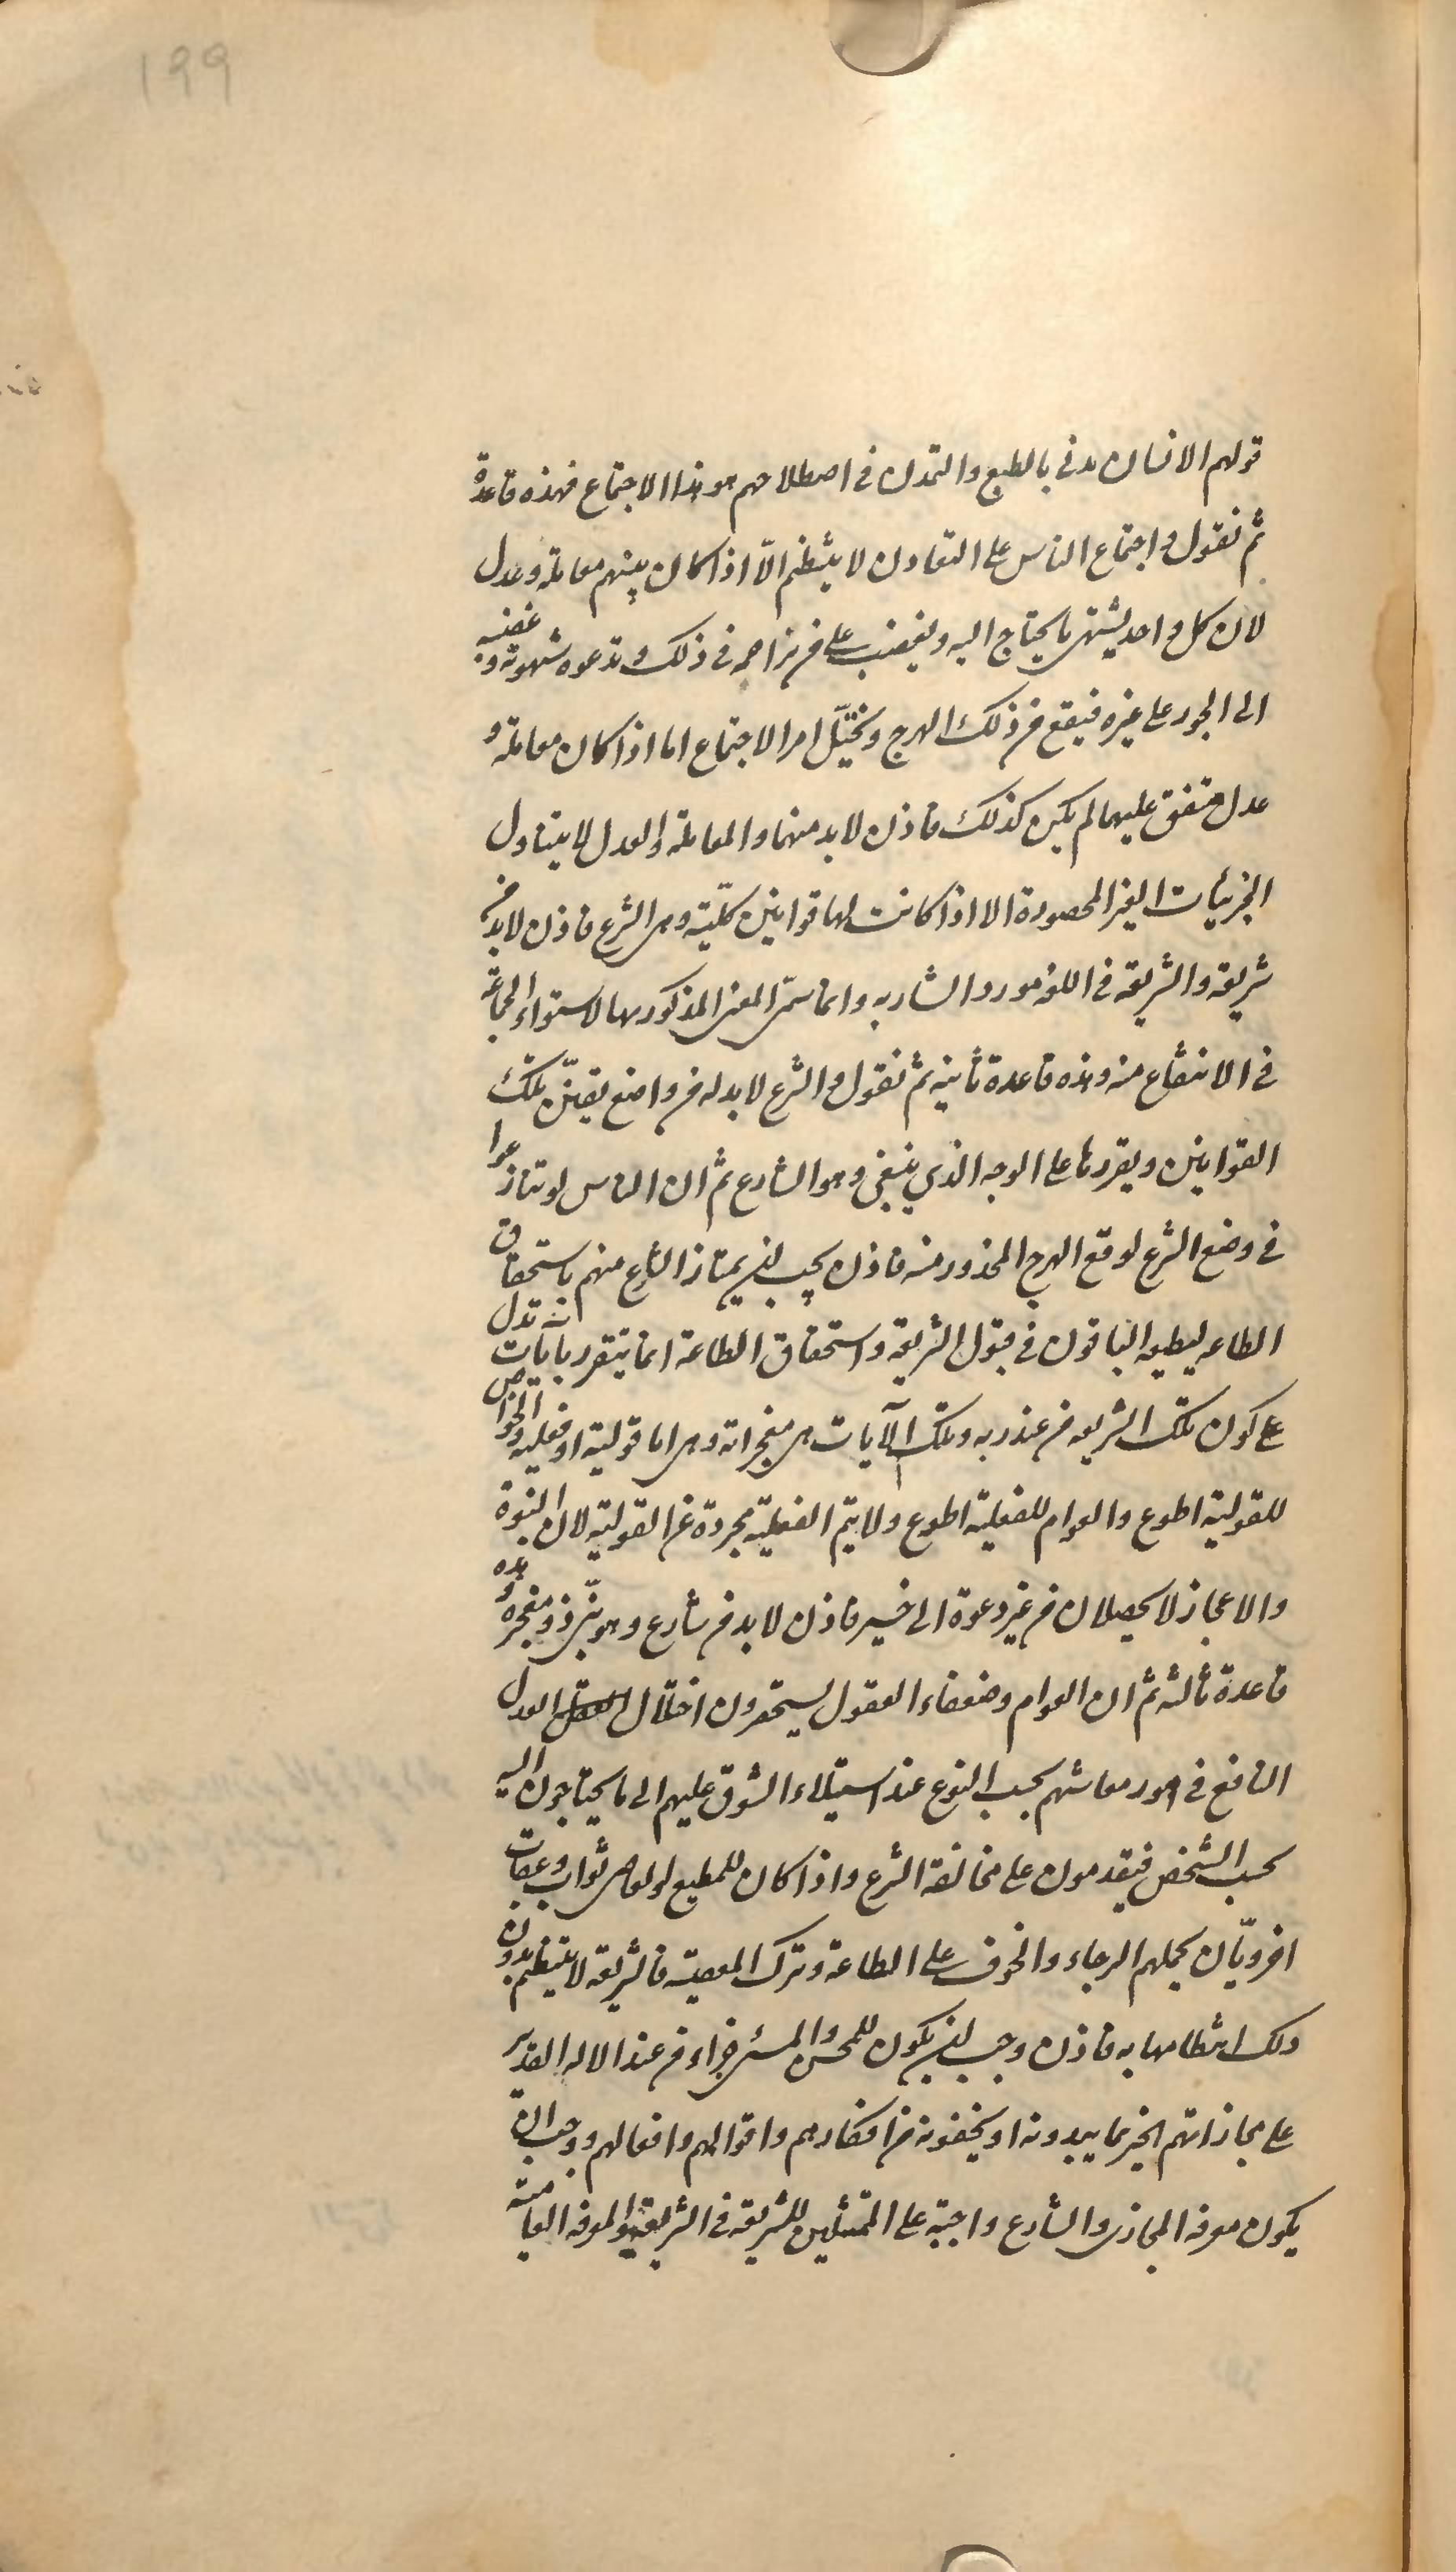 199
قولهم الانسان مدنى بالطبع والتمدن فى اصطلاحهم هو هذا الاجتماع فهذه قاعدة
ثم نقول و اجتماع الناس على التعاون لا ينتظم الّا اذا كان بينهم معاملة وعدل
لان كل واحد يشتهى ما يحتاج اليه ويغضب على من يزاحمه فى ذلك و تدعوه شهوته و غضبه
الى الجور على غيره فيقع من ذلك الهرج و يختلّ امر الاجتماع اما اذا كان معاملة و
عدل متفق عليهما لم يكن كذلك فاذن لا بد منهما والمعاملة و العدل لا يتناول
الجزئيات الغير المحصورة الا اذا كانت لها قوانين كلّية وهى الشرع فاذن لا بد من
شريعة والشريعة فى اللغة مورد الشاربه وانما سمّى المعنى المذكور بها لاستواء الجماعة
فى الانتفاع منه وهذه قاعدة ثانية ثم نقول و الشرع لا بد له من واضع يقنّن تلك
القوانين ويقررها على الوجه الذي ينبغى وهو الشارع ثم ان الناس لو تنازعوا
فى وضع الشرع لوقع الهرج المحذور منه فاذن يجب ان يمتاز الشارع منهم باستحقاق
الطاعه ليطيعه الباقون فى قبول الشريعة واستحقاق الطاعة انما يتقرر بايات تدل
على كون تلك الشريعه من عند ربه وتلك الآيات هى معجزاته وهى اما قولية او فعلية و الخواص
للقولية اطوع والعوام للفعلية اطوع ولا يتم الفعلية مجردة عن القولية لان النبوة
والاعجاز لا يحصلان من غير دعوة الى خير فاذن لا بد من شارع وهو نبىّ ذو معجزه وهذه
قاعدة ثالثه ثم ان العوام وضعفاء العقول يستحقرون اختلال العدل
النافع فى امور معاشهم بحسب النوع عند استيلاء الشوق عليهم الى ما يحتاجون اليه
بحسب الشخص فيقدمون على مخالفة الشرع واذا كان للمطيع و للعاصى ثواب وعقاب
اخرويّان يحملهم الرجاء والخوف على الطاعة وترك المعصية فالشريعة لا ينتظم بدون
ذلك انتظامها به فاذن وجب ان يكون للمحسن و المسىء جزاء من عند الاله القدير
على مجازاتهم الخبير بما يبدونه او يخفونه من افكارهم واقوالهم وافعالهم ووجب ان
يكون معرفة المجازى والشارع واجبة على الممتثلين للشريعة فى الشريعة و المعرفة العامية